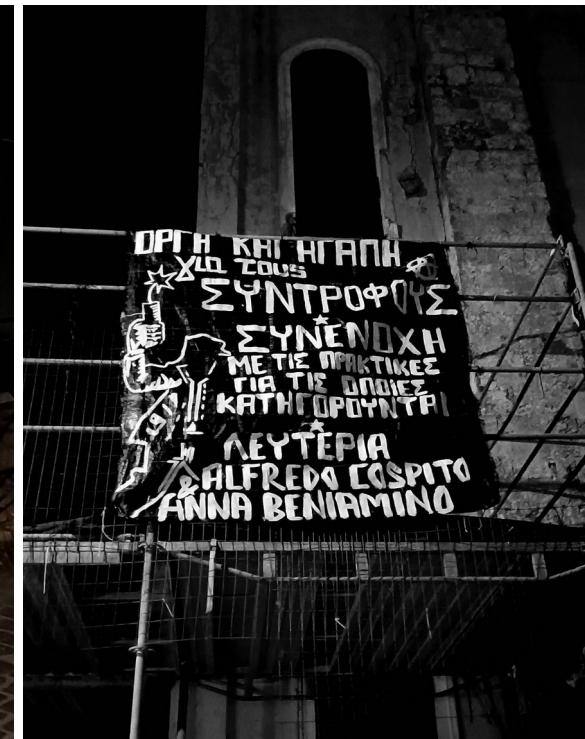 ΟΡΓΗ ΚΑΙ ΑΓΑΠΗ
για τους
ΣΥΝΤΡΟΦΟΥΣ
ΣΥΝΕΝΟΧΗ
ΜΕ ΤΙΣ ΠΡΑΚΤΙΚΕΣ
ΓΙΑ ΤΙΣ ΟΠΟΙΕΣ
ΚΑΤΗΓΟΡΟΥΝΤΑΙ
ΛΕΥΤΕΡΙΑ
ALFREDO COSPITO
& ANNA BENIAMINO